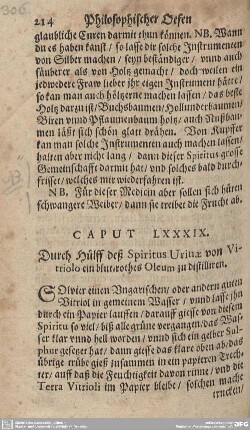 214 Philosophischer Oefen
glaubliche Curen darmit thun können. NB. Wann
du es haben kanst / so lasse dir solche Instrumenten
von Silber machen / seyn beständiger / vnnd auch
säuberer als von Holz gemacht / doch weilen ein
jedwedere Fraw lieber ihr eigen Instrument hätte /
so kan man auch hölzerne machen lassen / das beste
Holz darzu ist / Buchsbaumen / Hollunderbaumen /
Biren vnnd Pflaumenbaum holz / auch Nußbau-
men läßt sich schön glatt drähen. Von Kupffer
kan man solche Instrumenten auch machen lassen /
halten aber nicht lang / dann dieser Spiritus grosse
Gemeinschafft darmit hat / vnd solches bald durch-
frisset / welches mir wiederfahren ist.
NB. Für dieser Medicin aber sollen sich hüten
schwangere Weiber / dann sie treibet die Frucht ab.
CAPUT LXXXIX.
Durch Hülff deß Spiritus Urinæ von Vi-
triolo ein blutrothes Oleum zu distilliren.
Solvier einen Ungarischen / oder andern guten
Vitriol in gemeinem Wasser / vnnd lasse ihn
durch ein Papier lauffen / darauff giesse von diesem
Spiritu so viel / biß alle grüne vergangen / das Was-
ser klar vnnd hell worden / vnnd sich ein gelber Sul-
phur gesetzet hat / dann giesse das klare oben ab / das
übrige trübe gieß zusammen in ein papieren Trech-
ter / auff daß die Feuchtigkeit davon rinne / vnd die
Terra Vitrioli im Papier bleibe / solchen mache
trucken /